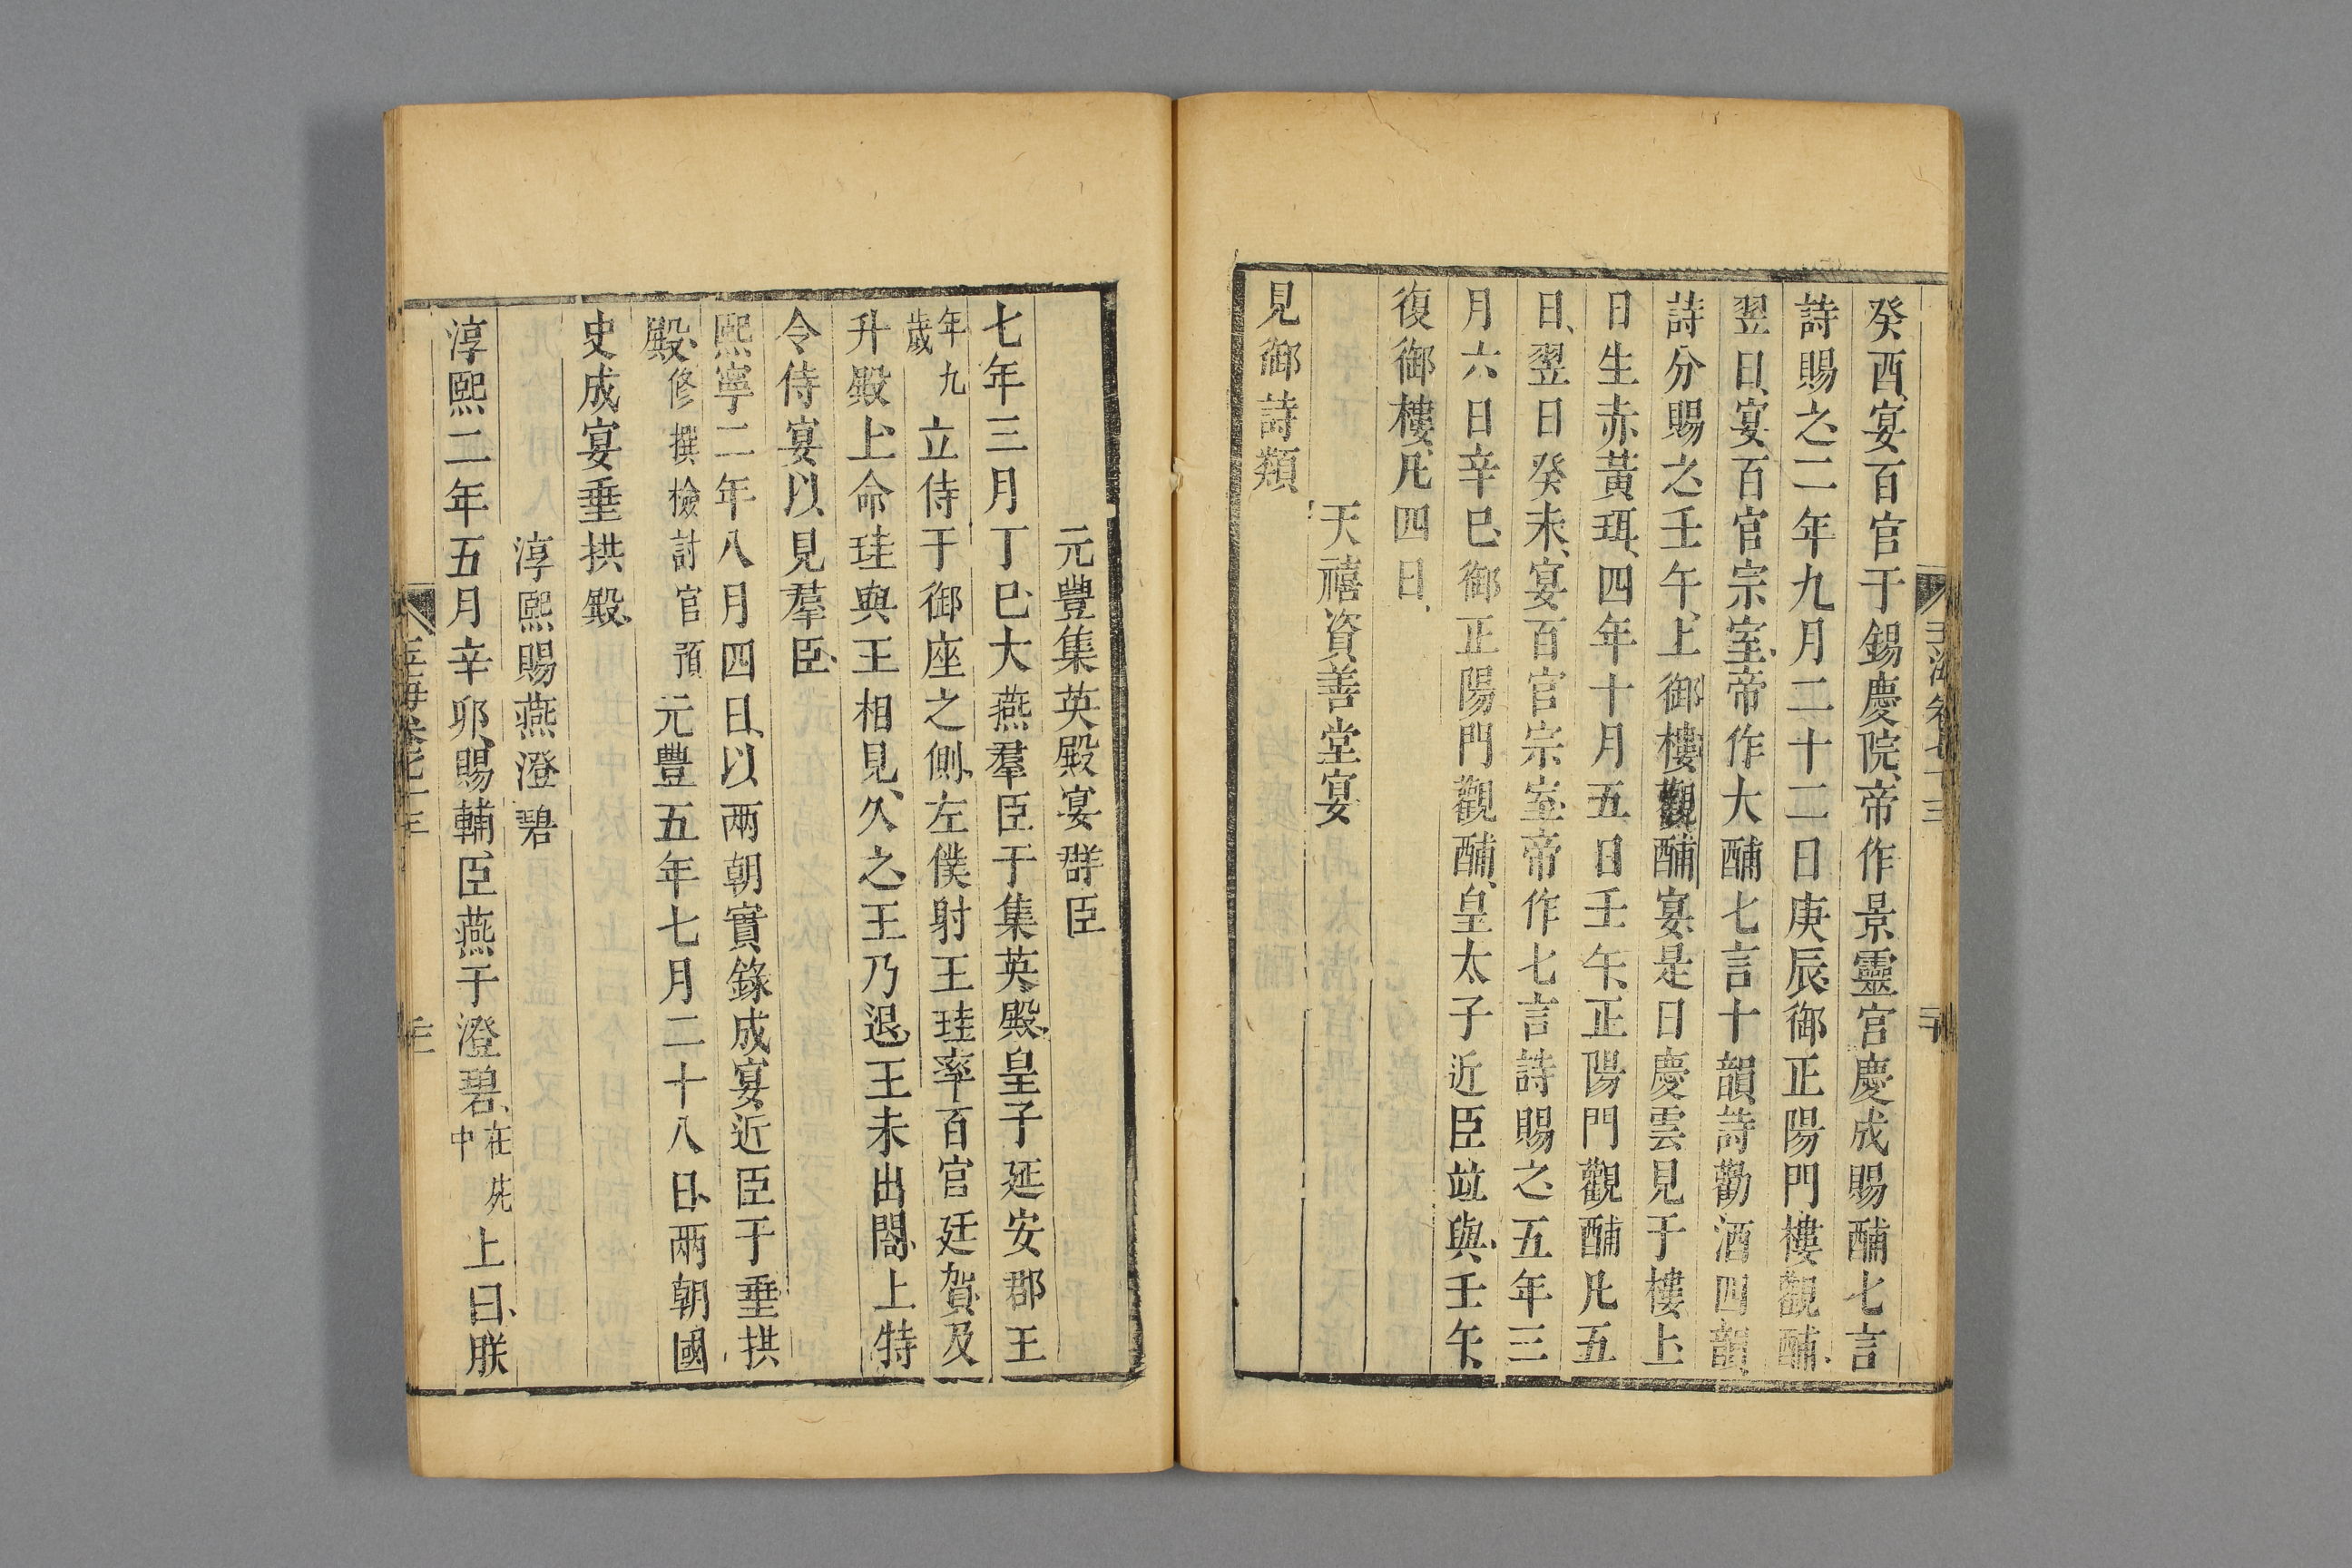 癸酉、宴百官于錫慶院、帝作景靈宮慶成賜酺七言
詩賜之、二年九月二十二日庚辰、御正陽門樓觀酺、
翌日、宴百官宗室、帝作大酺七言十韻詩勸酒四韻
詩分賜之、壬午、上御樓觀酺宴、是日慶雲見于樓上
日生赤黃珥、四年十月五日壬午、正陽門觀酺凡五
日、翌日癸未、宴百官宗室、帝作七言詩賜之、五年三
月六日辛巳、御正陽門觀酺、皇太子近臣竝與、壬午、
復御樓、凡四日、
天禧資善堂宴
見御詩類
元豐集英殿宴群臣
七年三月丁巳、大燕羣臣于集英殿、皇子延安郡王
年九歲立侍于御座之側、左僕射王珪率百官廷賀、及
升殿、上命珪與王相見、久之、王乃退、王未出閤、上特
令侍宴以見羣臣、
熙寧二年八月四日、以兩朝實錄成、宴近臣于垂拱
殿、修撰檢討官預元豐五年七月二十八日、兩朝國
史成宴垂拱殿、
淳熙賜燕澄碧
淳熙二年五月辛卯、賜輔臣燕于澄碧、在苑中上曰、朕